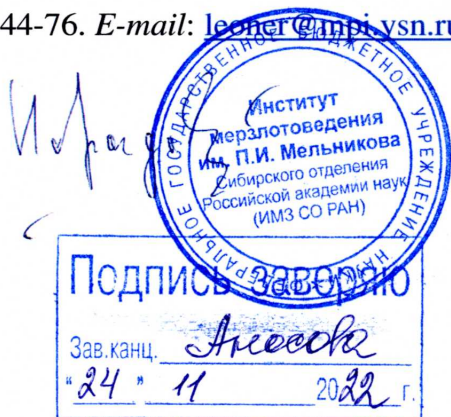 44-76. E-mail: leoner@mpi.ysn.ru
ФЕДЕРАЛЬНОЕ ГОСУДАРСТВЕННОЕ БЮДЖЕТНОЕ УЧРЕЖДЕНИЕ НАУКИ
Институт
мерзлотоведения
им. П.И. Мельникова
Сибирского отделения
Российской академии наук
(ИМЗ СО РАН)
Подпись заверяю
Зав.канц.
"24" 11 2022 г.